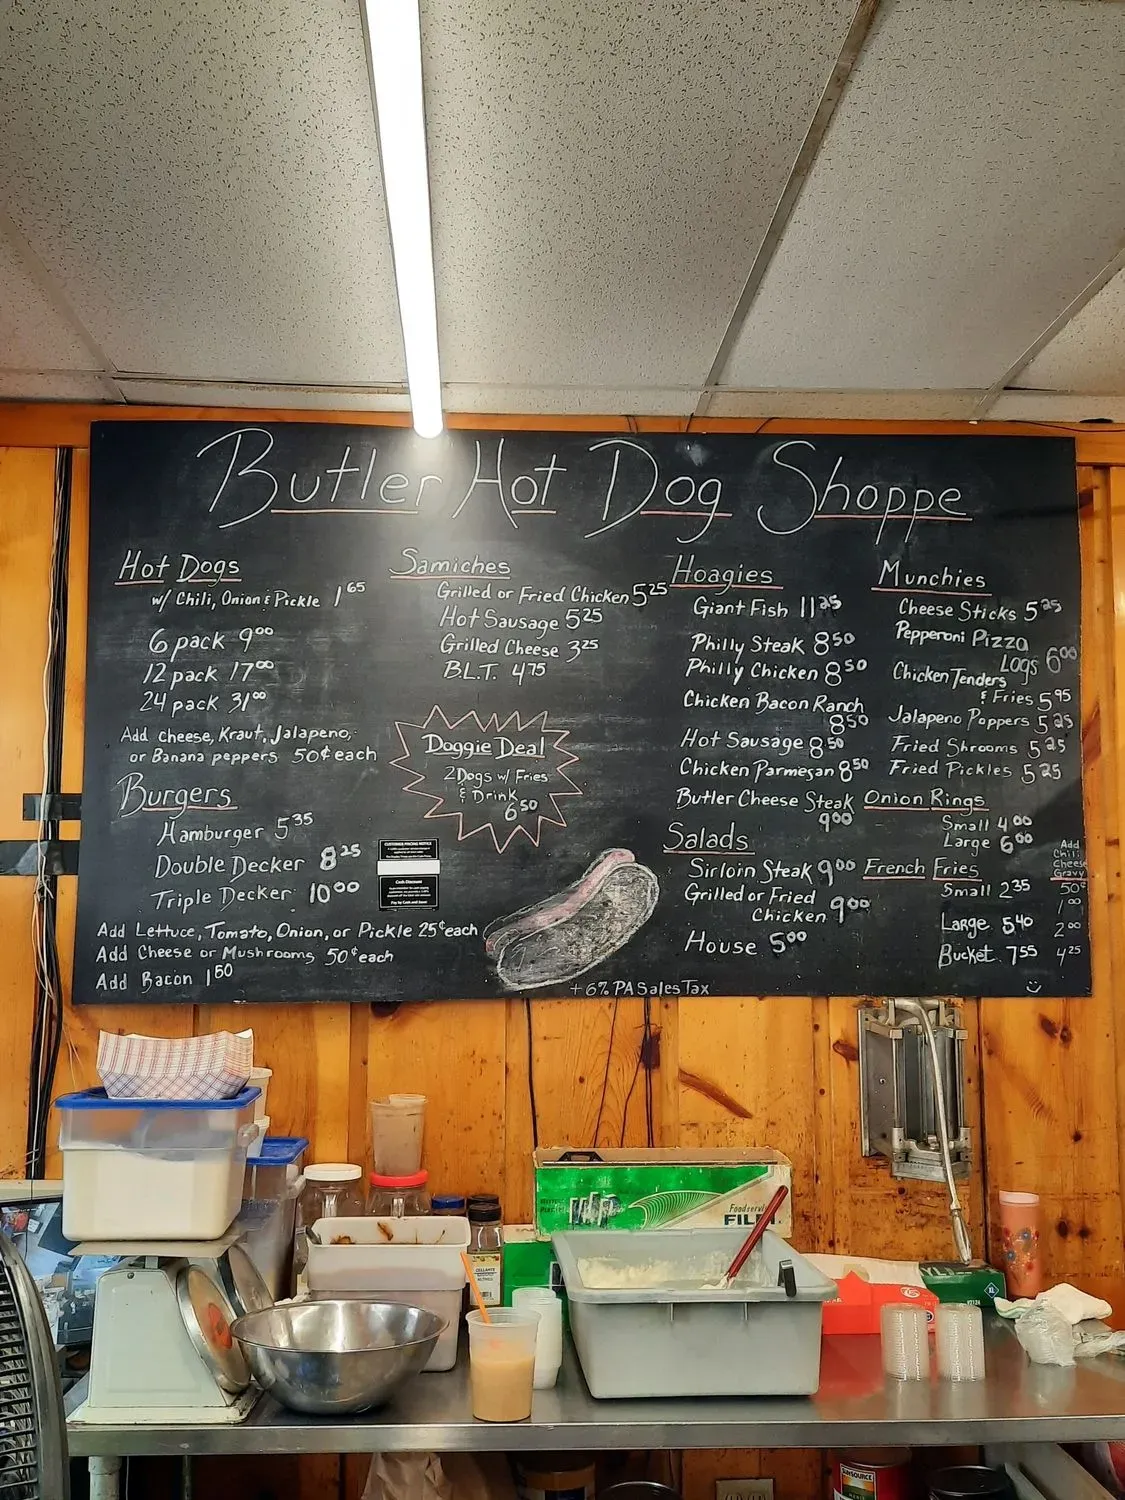 Butler Hot Dog Shoppe
Hot Dogs
w/ Chili, Onion & Pickle 1.65
6 pack 9.00
12 pack 17.00
24 pack 31.00
Add cheese, Kraut, Jalapeno,
or Banana peppers 50¢ each
Burgers
Hamburger 5.35
Double Decker 8.25
Triple Decker 10.00
Add Lettuce, Tomato, Onion, or Pickle 25¢ each
Add Cheese or Mushrooms 50¢ each
Add Bacon 1.50
Samiches
Grilled or Fried Chicken 5.25
Hot Sausage 5.25
Grilled Cheese 3.25
B.L.T. 4.75
Doggie Deal
2 Dogs w/ Fries
& Drink
6.50
CUSTOMER PRICING NOTICE
Cash Discount
+ 6% PA Sales Tax
Hoagies
Giant Fish 11.25
Philly Steak 8.50
Philly Chicken 8.50
Chicken Bacon Ranch
8.50
Hot Sausage 8.50
Chicken Parmesan 8.50
Butler Cheese Steak
9.00
Salads
Sirloin Steak 9.00
Grilled or Fried
Chicken 9.00
House 5.00
Munchies
Cheese Sticks 5.25
Pepperoni Pizza
Logs 6.00
Chicken Tenders
& Fries 5.95
Jalapeno Poppers 5.25
Fried Shrooms 5.25
Fried Pickles 5.25
Onion Rings
Small 4.00
Large 6.00
French Fries
Small 2.35
Large 5.40
Bucket 7.55
Add
Chili
Cheese
Gravy
50¢
1.00
2.00
4.25
Foodservice
FILM
XL